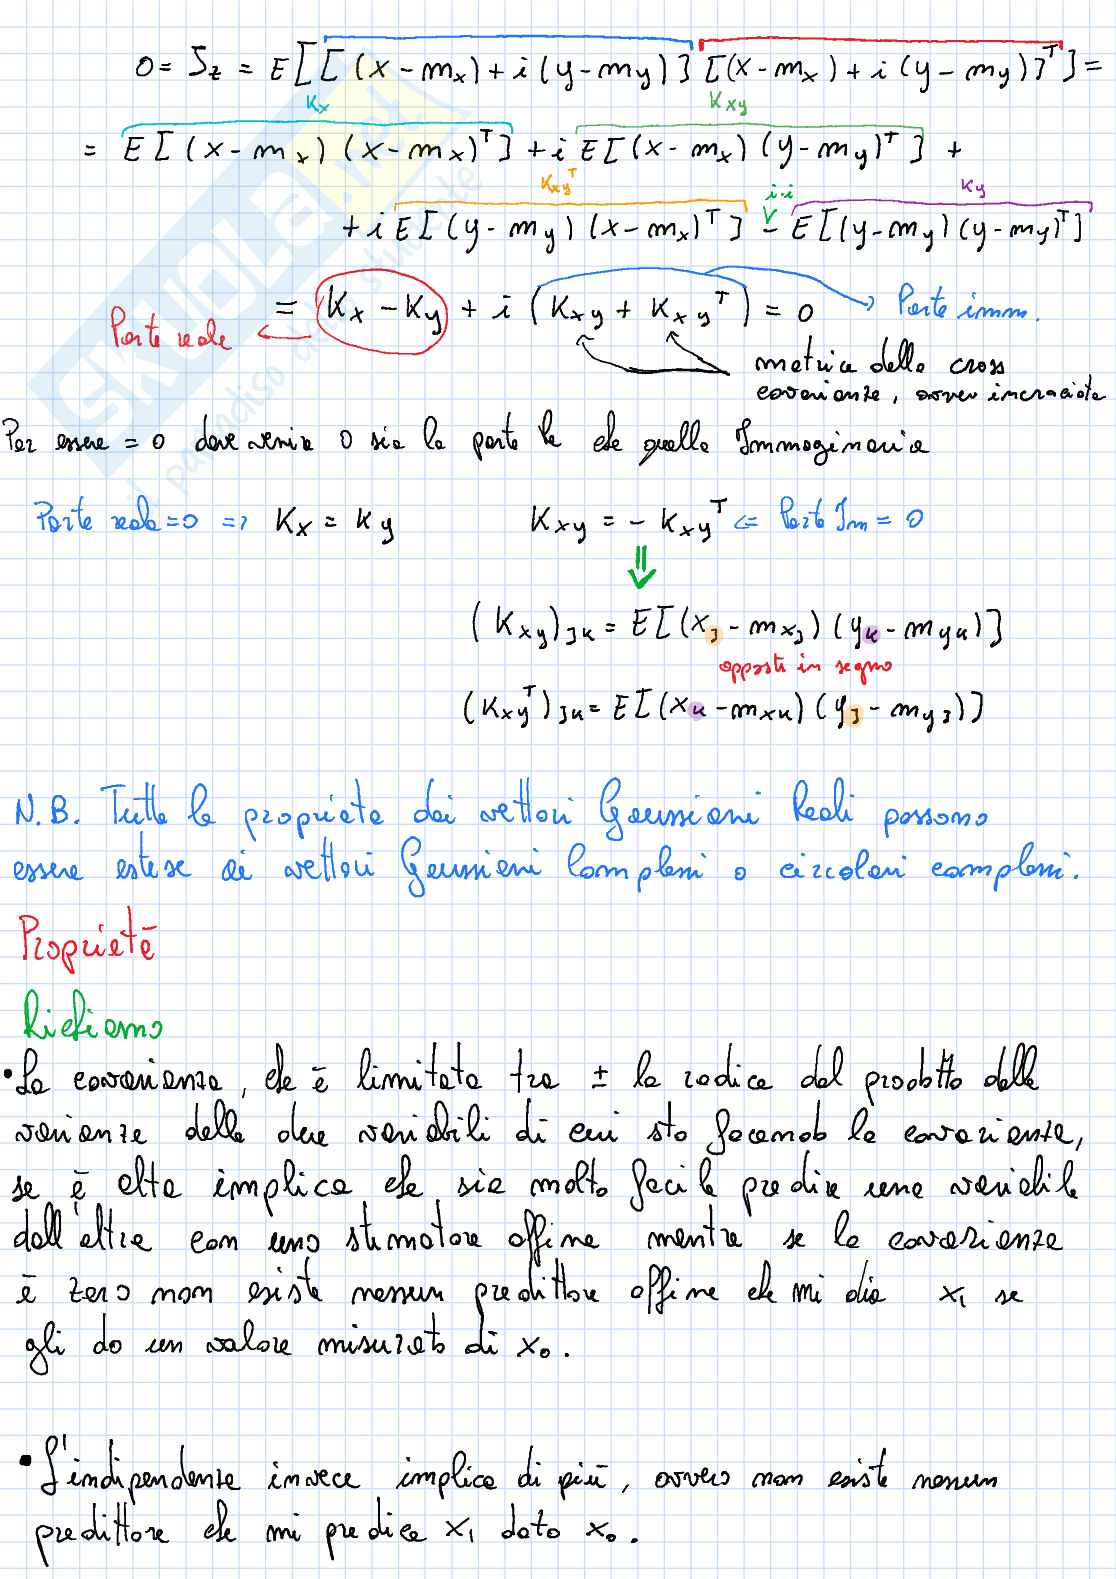 0 = Sz = E[[(x-mx)+i(y-my)][(x-mx)+i(y-my)]ᵀ] =
Kx Kxy
= E[(x-mx)(x-mx)ᵀ] + i E[(x-mx)(y-my)ᵀ] +
Kxyᵀ i·i Ky
+ i E[(y-my)(x-mx)ᵀ] - E[(y-my)(y-my)ᵀ]
= Kx - Ky + i (Kxy + Kxyᵀ) = 0 Parte imm.
Parte reale
matrice delle cross
covarianze, ovver incrociata
Per essere = 0 deve venire 0 sia la parte Re che quella Immaginaria
Parte reale = 0 => Kx = Ky Kxy = - Kxyᵀ <= Parte Im = 0
⇓
(Kxy)jk = E[(xj - mxj)(yk - myk)]
opposti in segno
(Kxyᵀ)jk = E[(xk - mxk)(yj - myj)]
N.B. Tutte le proprietà dei vettori Gaussiani Reali possono
essere estese ai vettori Gaussiani Complessi o circolari complessi.
Proprietà
Richiamo
• La covarianza, che è limitata tra ± la radice del prodotto delle
varianze delle due variabili di cui sto facendo la covarianza,
se è alta implica che sia molto facile predire una variabile
dall'altra con uno stimatore affine mentre se la covarianza
è zero non esiste nessun predittore affine che mi dia x₁ se
gli do un valore misurato di x₀.
• L'indipendenza invece implica di più, ovvero non esiste nessun
predittore che mi predica x₁ dato x₀.
SKUOLA.net
il paradiso dello studente